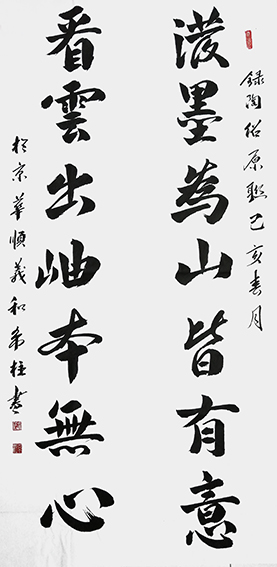 録陶俗原聯己亥春月
潑墨為山皆有意
看雲出岫本無心
於京華順義和柱書